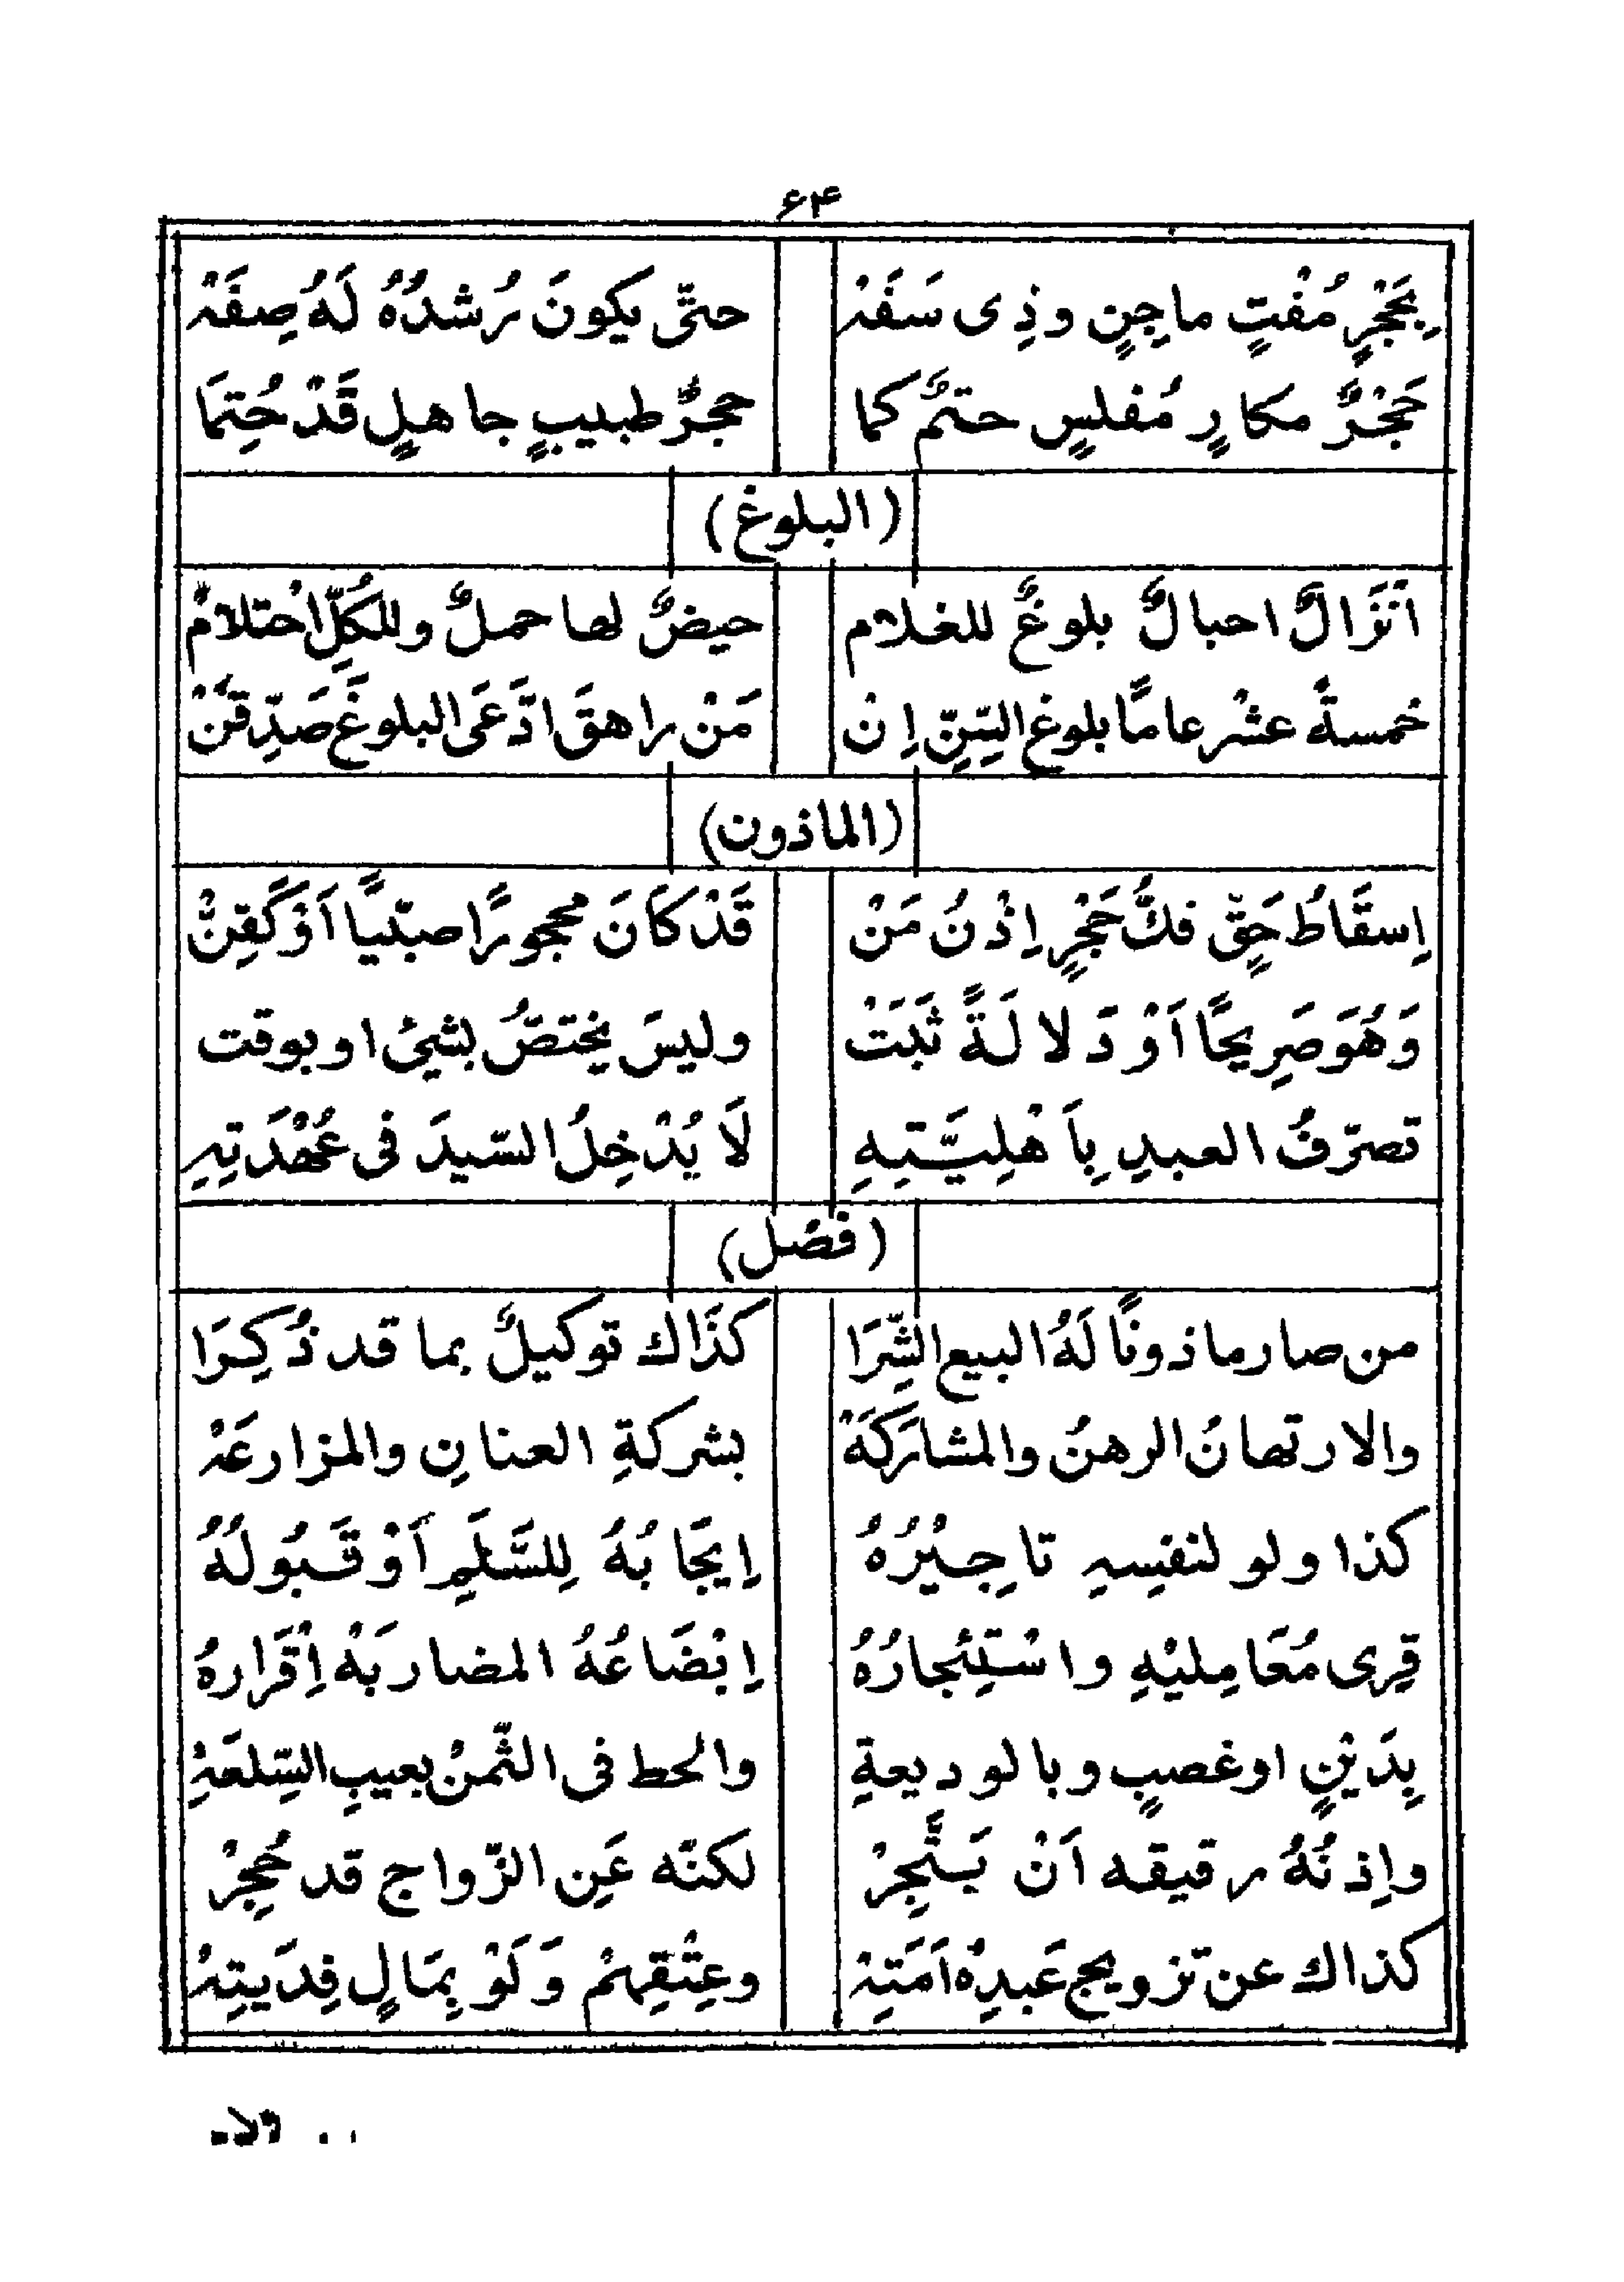 ۶۴
بِحَجْرٍ مُفْتٍ ماجِنٍ وذِی سَفَہْ حتّی یکونَ رُشدُہُ لَہُ صِفَہْ
حَجْرٌ مکارٍ مُفلسٍ حتمٌ کما حجرٌ طبیبٍ جاهلٍ قَدْ حُتِمَا
(البلوغ)
اَنْزَالٌ احبالٌ بلوغٌ للغلام حیضٌ لها حملٌ وللکُلِّ احْتلامٌ
خمسةً عشْر عامًا بلوغ السِّنِّ اِنْ مَنْ راهقَ ادَّعَی البلوغَ صَدِّقَنْ
(الماذون)
اِسقَاطُ حَقٍّ فكُّ حَجْرٍ اِذْنُ مَنْ قَدْ کَانَ محجورًا صبّیًا اَوْ کَقِنّْ
وَهُوَ صَرِیحًا اَوْ دَلالَةً ثَبَتْ ولیسَ یختصُّ بشیئ او بوقت
تصرّفُ العبدِ بِاَهْلِیَّتِهِ لَا یُدْخِلُ السّیدَ فی عُهْدَتِهِ
(فصْل)
من صار ماذونًا لَهُ البیع الشِّرَا کذَاك توکیلٌ بما قد ذُکِرَا
والارتهانُ الرهنُ والمشارَکَهْ بشرکةِ العنانِ والمزارعَہْ
کذا ولو لنفسِهِ تاجِیْرُهُ اِیجَابُهُ لِلسَّلَمِ اَوْ قَبُولُهُ
قِری مُعَامِلیْهِ واسْتِئجارُهُ اِبْضَاعُهُ المضاربَهْ اِقْرَارهُ
بِدَیْنٍ اوغصبٍ وبالودیعةِ والحط فی الثّمنْ بعیبِ السِّلعَةِ
واِذنُهُ رقیقه اَنْ یَتَّجِرْ لکنّه عَنِ الزّواج قد حُجِرْ
کذاك عن تزویج عَبدِہْ اَمَتِہْ وعِتْقِهِمْ وَلَوْ بِمَالٍ فِدْیَتِہْ